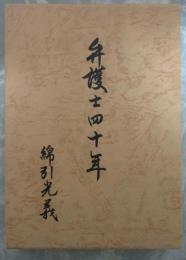 弁護士四十年
綿引光義